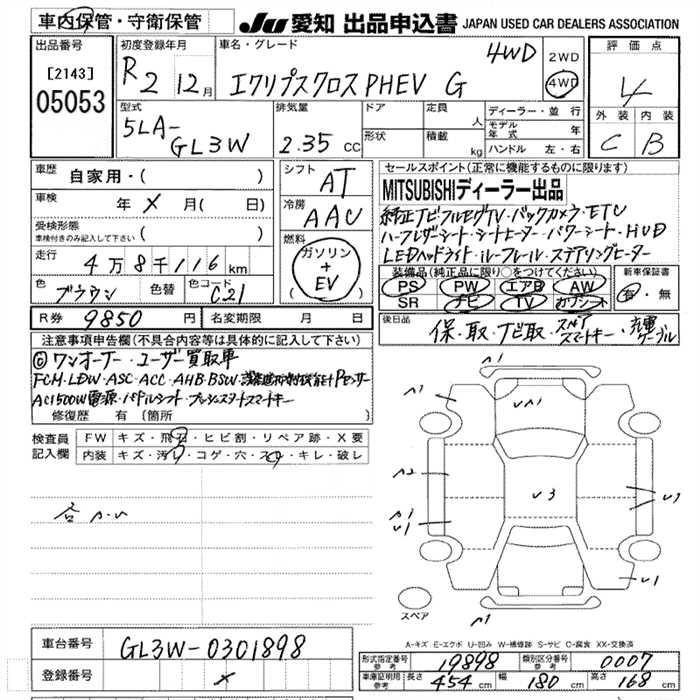 車内保管・守衛保管
JU 愛知 出品申込書 JAPAN USED CAR DEALERS ASSOCIATION
出品番号
[2143]
05053
初度登録年月
R2 12月
車名・グレード
エクリプスクロスPHEV G 4WD
2WD
4WD
評価点
4
外装 内装
C B
型式
5LA-
GL3W
排気量
2.35 CC
ドア
形状
定員 人
積載 kg
ディーラー・並行
モデル年式 年
ハンドル 左・右
車歴
自家用・( )
車検
年 × 月( 日)
受検形態
車検付きのみ記入して下さい ( )
走行
4万8千116km
色
ブラウン
色替
色コード
C21
シフト
AT
冷房
AAC
燃料
ガソリン
+
EV
( )
R券 9850円
名変期限 月 日
セールスポイント(正常に機能するものに限ります)
MITSUBISHIディーラー出品
純正ナビフルセグTV・バックカメラ・ETC
ハーフレザーシート・シートヒーター・パワーシート・HUD
LEDヘッドライト・ルーフレール・ステアリングヒーター
装備品(純正品に限り○をつけてください)
PS PW エアB AW
SR ナビ TV カワシート
新車保証書
有・無
後日品
保・取・ナビ取・スペアスマートキー・充電ケーブル
注意事項申告欄(不具合内容等は具体的に記入して下さい)
◎ワンオーナー・ユーザー買取車
FCM・LDW・ASC・ACC・AHB・BSW・誤発進抑制機能+Pセンサー
AC1500W電源・パドルシフト・プッシュスタートスマートキー
修復歴 有〔箇所 〕
検査員
記入欄
FW キズ・飛石・ヒビ割・リペア跡・X要
内装 キズ・汚レ・コゲ・穴・スレ・キレ・破レ
A1
UA1
A2
A1
U1
U3
U1
A1
スペア
A-キズ E-エクボ U-凹み W-補修跡 S-サビ C-腐食 XX-交換済
車台番号
GL3W-0301898
登録番号
×
形式指定番号
参考
19898
類別区分番号
参考
0007
車庫証明用
参考
長さ 454cm 幅 180cm 高さ 168cm